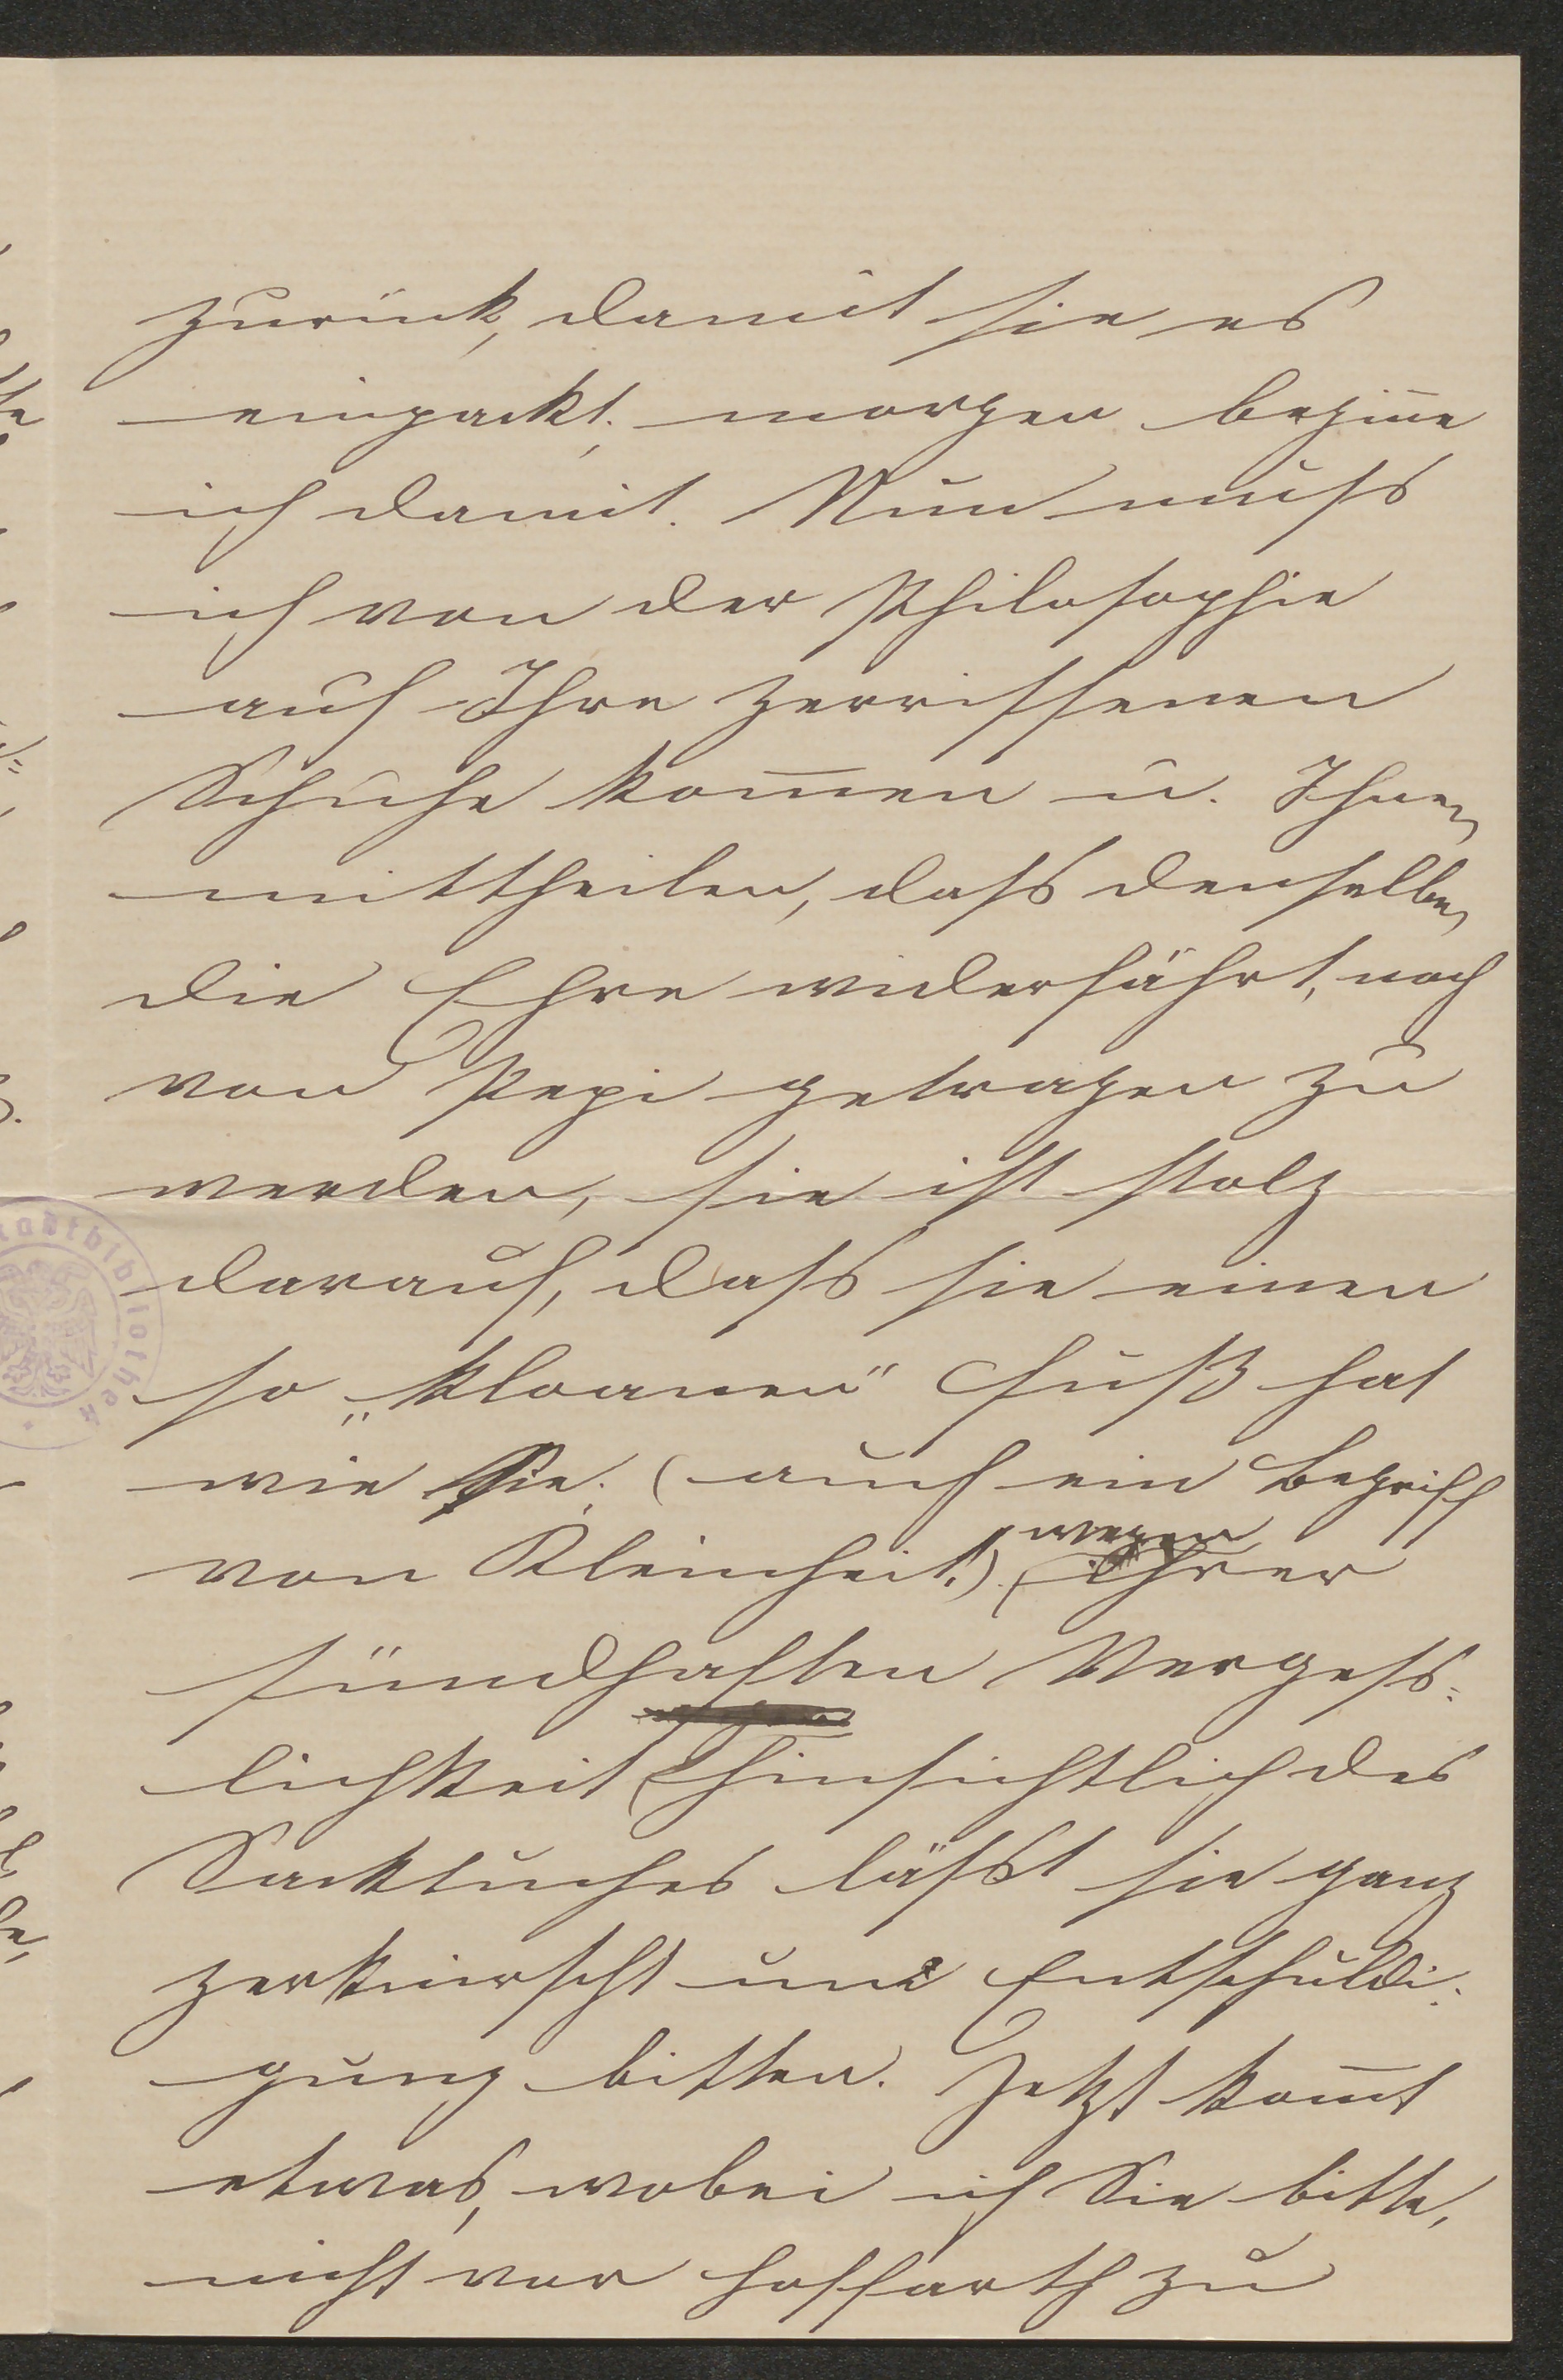 zurück, damit sie es
einpackt; morgen begiñe
ich damit. Nun muss
ich von der Philosophie
auf Ihre zerrissenen
Schuhe kom̄en u. Ihnen
mittheilen, dass denselben
die Ehre widerfährt, noch
von Pepi getragen zu
werden, sie ist stolz
darauf, dass sie einen
so „kloanen" Fuß hat
wie Sie; (auch ein Begriff
von Kleinheit!). wegen Ihrer
sündhaften Vergess=
lichkeit hinsichtlich des
Sacktuches lässt sie ganz
zerknirscht um Entschuldi=
gung bitten. Jetzt kom̄t
etwas, wobei ich Sie bitte,
nicht vor Hoffarth zu
Stadtbibliothek